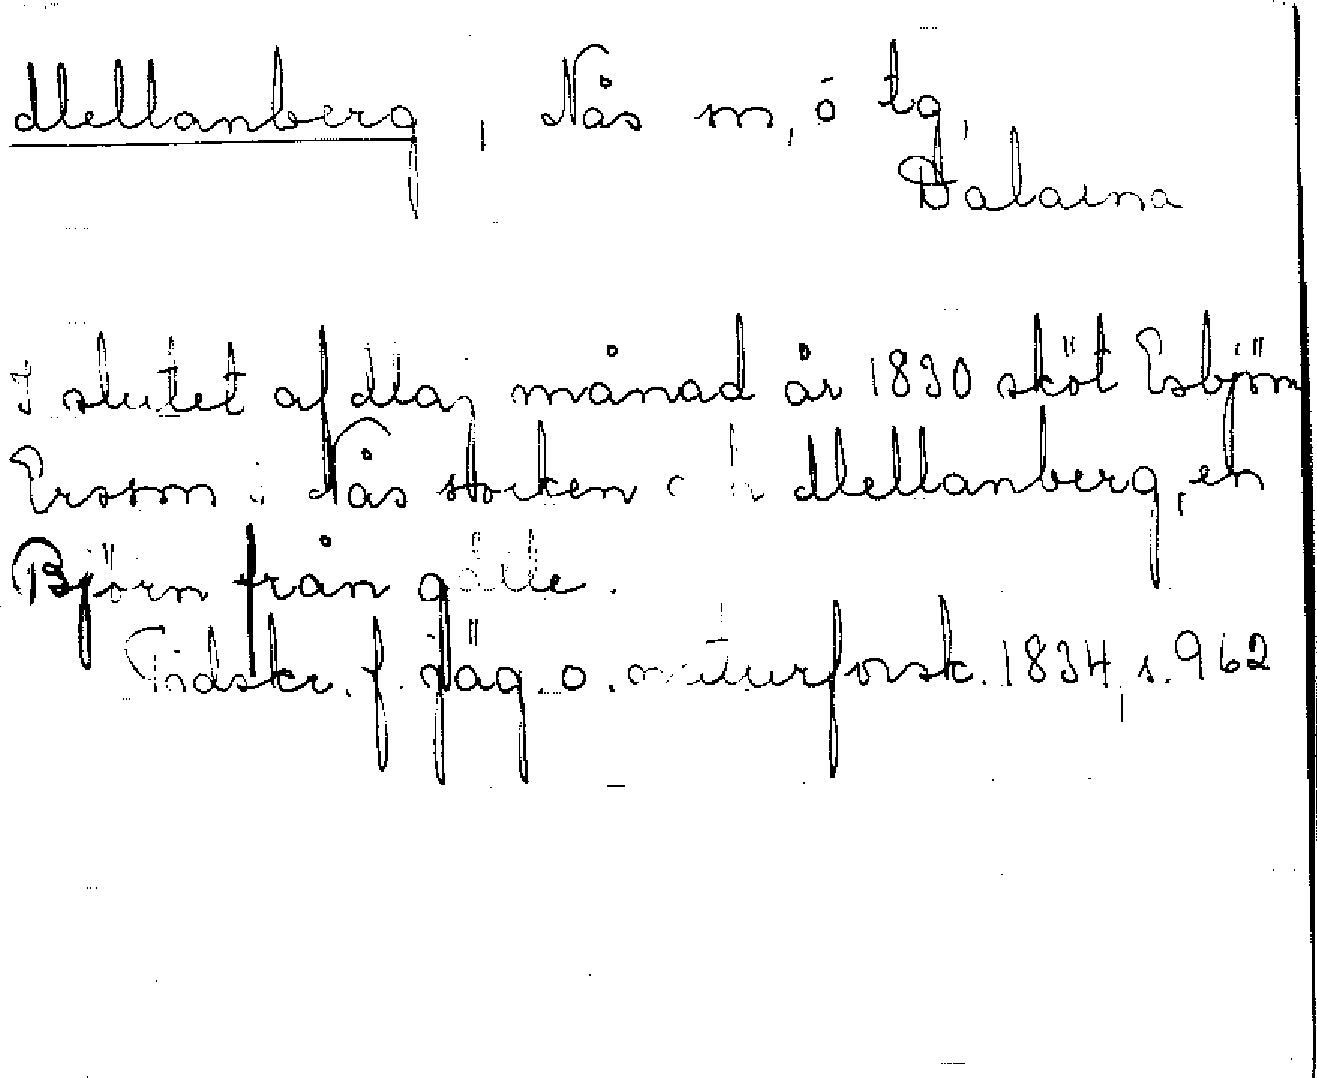 Mellanberg, Nås sn, ö tg,
Dalarna
I slutet af Maj månad år 1830 sköt Esbjörn
Ersson i Nås socken och Mellanberg, en
Björn från gålle.
Tidskr. f. Jäg. o. naturforsk. 1834, s. 962